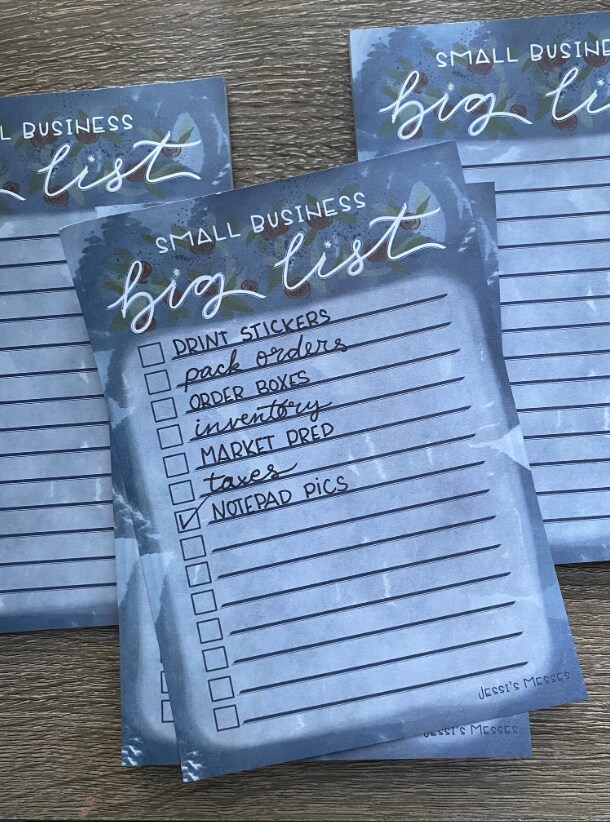 SMALL BUSINESS
big list
PRINT STICKERS
pack orders
ORDER BOXES
inventory
MARKET PREP
taxes
NOTEPAD PICS
JESSI'S MESSES
L BUSINESS
list
SMALL BUSINE
big li
JESSI'S MESSES